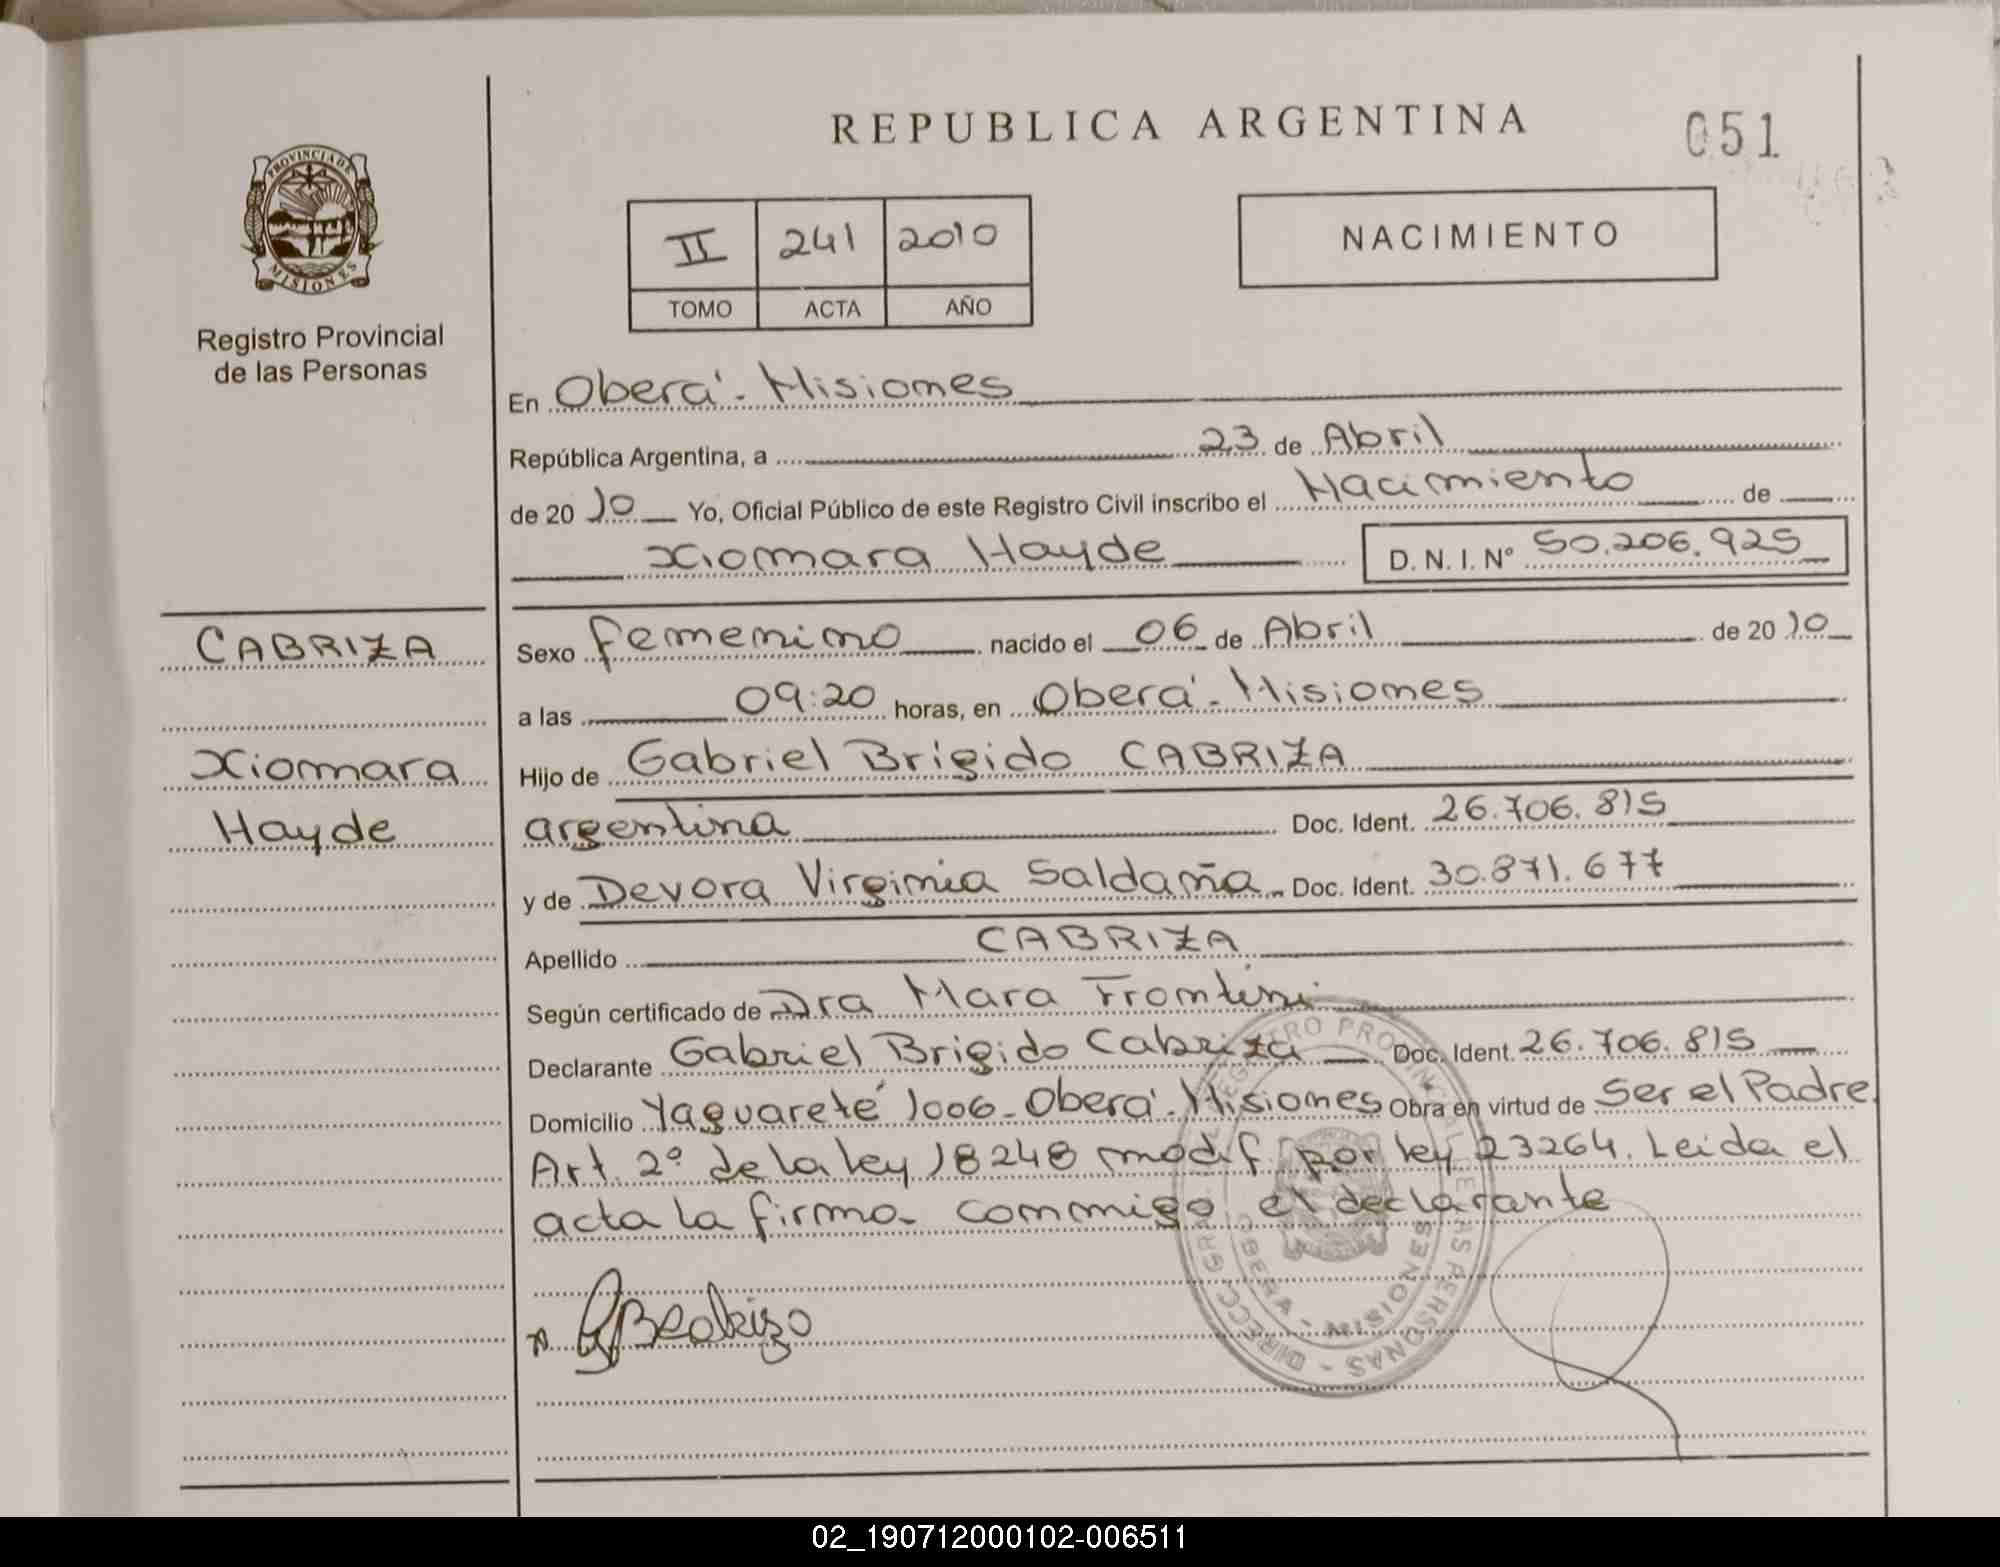 REPUBLICA ARGENTINA
051
PROVINCIA DE
MISIONES
Registro Provincial
de las Personas
II 241 2010
TOMO ACTA AÑO
NACIMIENTO
En Oberá - Misiones
República Argentina, a 23 de Abril
de 20 10 Yo, Oficial Público de este Registro Civil inscribo el Nacimiento de
Xiomara Hayde D. N. I. Nº 50.206.925
CABRIZA
Xiomara
Hayde
Sexo femenino nacido el 06 de Abril de 20 10
a las 09:20 horas, en Oberá - Misiones
Hijo de Gabriel Brigido CABRIZA
argentina Doc. Ident. 26.706.815
y de Devora Virginia Saldaña - Doc. Ident. 30.871.677
Apellido CABRIZA
Según certificado de Dra Mara Frontini
Declarante Gabriel Brigido Cabriza Doc. Ident. 26.706.815
Domicilio Yaguareté 1006 - Oberá - Misiones Obra en virtud de Ser el Padre.
Art. 2º de la ley 18248 modif. por ley 23264. Leida el
acta la firma - conmigo el declarante
OBERA - MISIONES
02_190712000102-006511